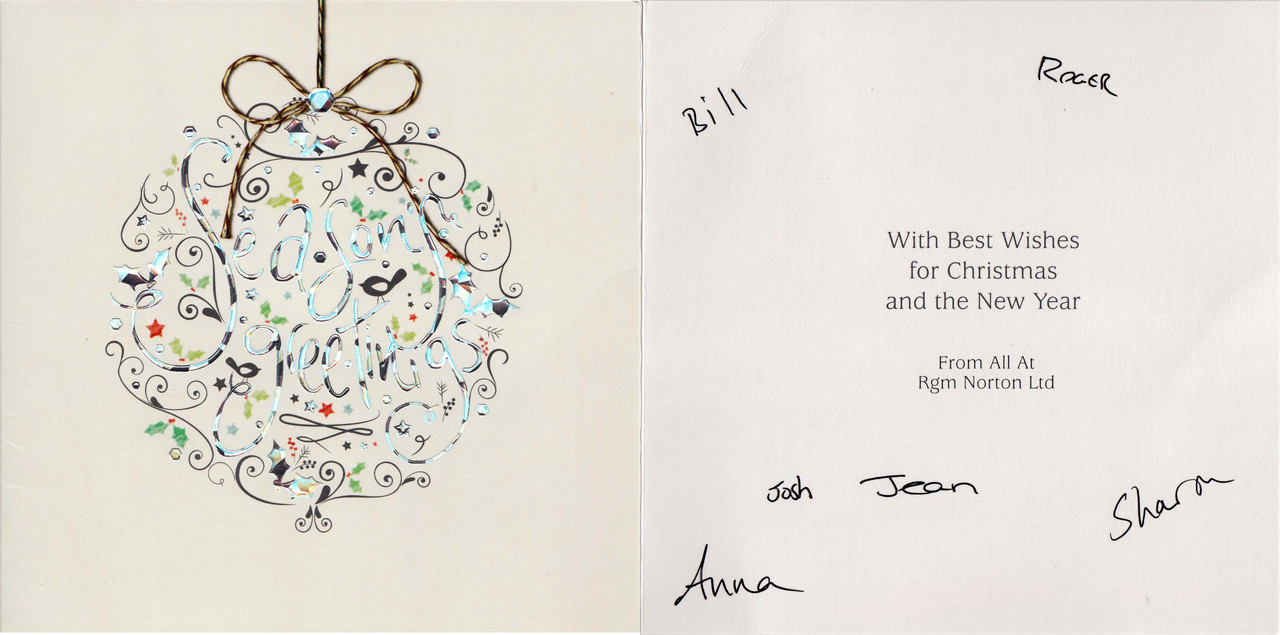 Season's
greetings
Bill
ROGER
With Best Wishes
for Christmas
and the New Year
From All At
Rgm Norton Ltd
Josh
Jean
Sharon
Anna